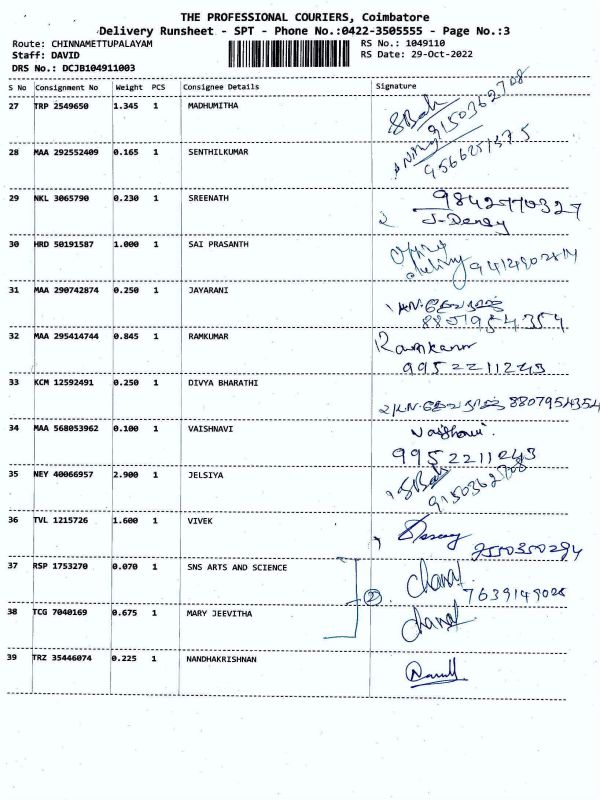 THE PROFESSIONAL COURIERS, Coimbatore
Delivery Runsheet - SPT - Phone No.:0422-3505555 - Page No.:3
Route: CHINNAMETTUPALAYAM
Staff: DAVID
DRS No.: DCJB104911003
RS No.: 1049110
RS Date: 29-Oct-2022
S No Consignment No Weight PCS Consignee Details Signature
27 TRP 2549650 1.345 1 MADHUMITHA
9150362708
28 MAA 292552409 0.165 1 SENTHILKUMAR
29 NKL 3065790 0.230 1 SREENATH
30 HRD 50191587 1.000 1 SAI PRASANTH
31 MAA 290742874 0.250 1 JAYARANI
8807954354
32 MAA 295414744 0.845 1 RAMKUMAR
Ramkumar
9952211243
33 KCM 12592491 0.250 1 DIVYA BHARATHI
8807954354
34 MAA 568053962 0.100 1 VAISHNAVI
Vaishnavi
9952211243
35 NEY 40066957 2.900 1 JELSIYA
9150362708
36 TVL 1215726 1.600 1 VIVEK
37 RSP 1753270 0.070 1 SNS ARTS AND SCIENCE
7639149028
38 TCG 7040169 0.675 1 MARY JEEVITHA
2
39 TRZ 35446074 0.225 1 NANDHAKRISHNAN